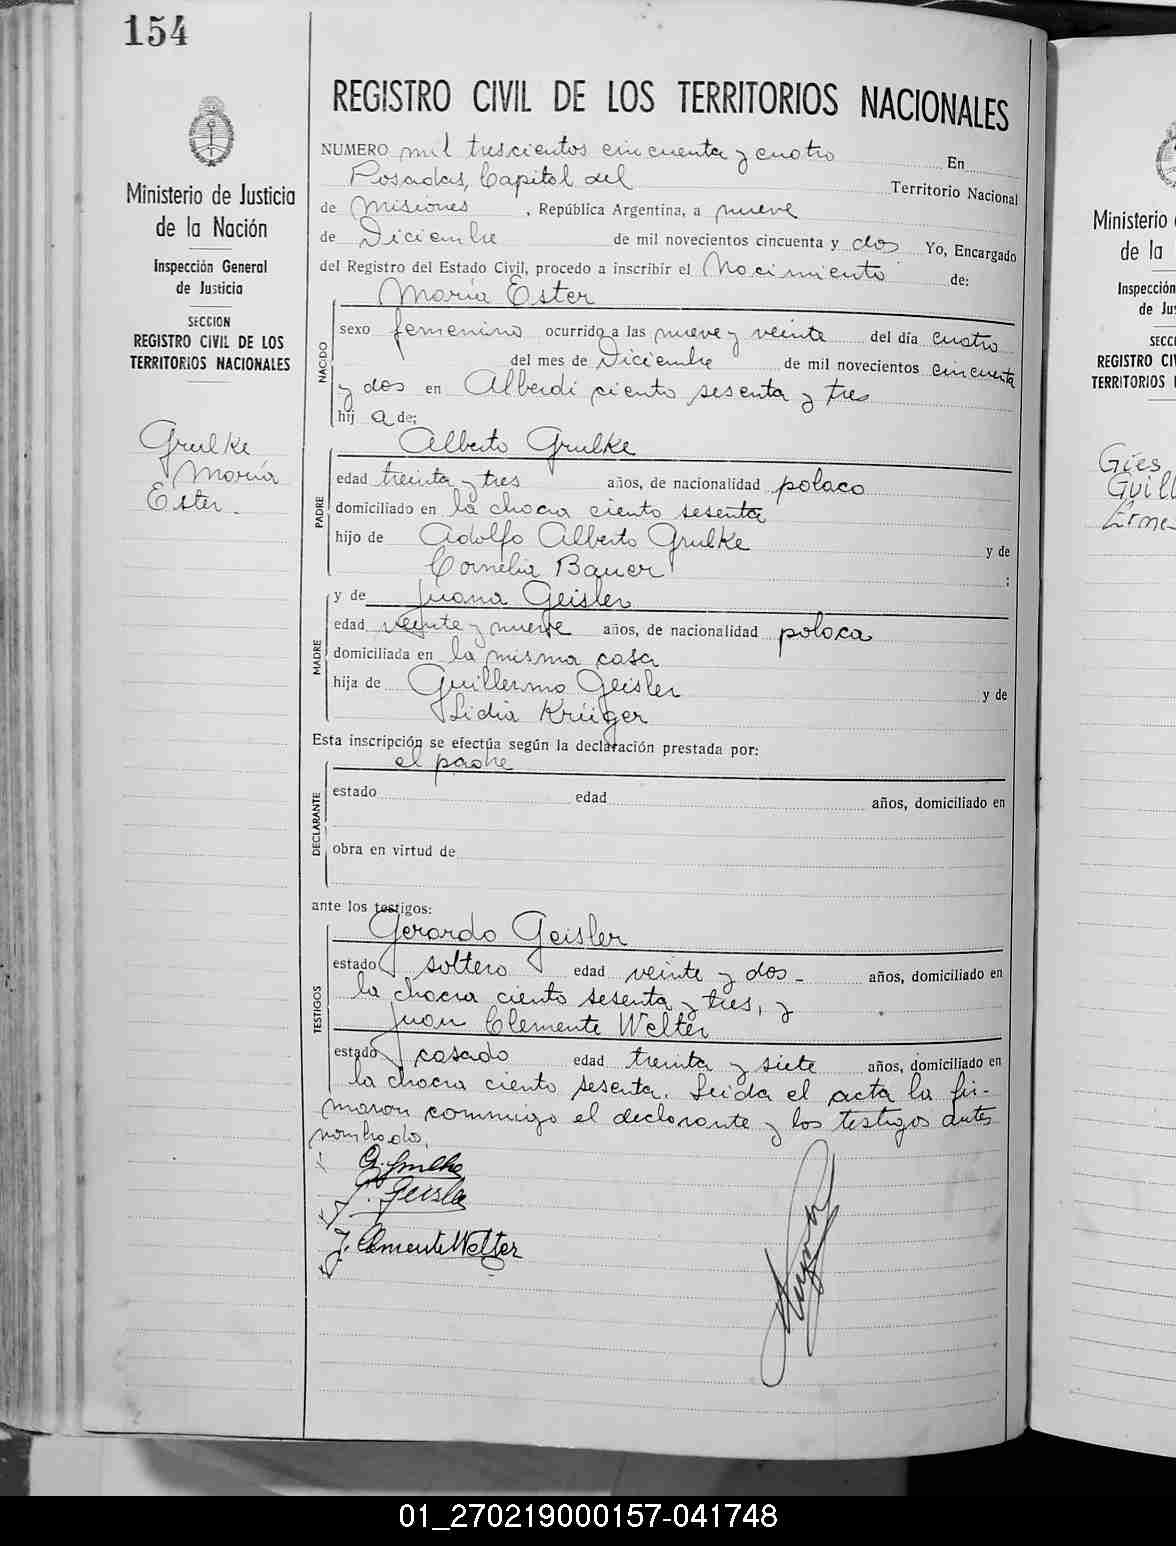 154
REGISTRO CIVIL DE LOS TERRITORIOS NACIONALES
Ministerio de Justicia
de la Nación
Inspección General
de Justicia
SECCION
REGISTRO CIVIL DE LOS
TERRITORIOS NACIONALES
Grulke
María
Ester.
NUMERO mil trescientos cincuenta y cuatro En
Posadas, Capital del Territorio Nacional
de Misiones, República Argentina, a nueve
de Diciembre de mil novecientos cincuenta y dos Yo, Encargado
del Registro del Estado Civil, procedo a inscribir el Nacimiento de:
María Ester
NACIDO
sexo femenino ocurrido a las nueve y veinte del día cuatro
del mes de Diciembre de mil novecientos cincuenta
y dos en Alberdi ciento sesenta y tres
hij a de:
Alberto Grulke
PADRE
edad treinta y tres años, de nacionalidad polaco
domiciliado en la chacra ciento sesenta
hijo de Adolfo Alberto Grulke y de
Cornelia Bauer :
y de Juana Geisler
MADRE
edad veinte y nueve años, de nacionalidad polaca
domiciliada en la misma casa
hija de Guillermo Geisler y de
Lidia Krüger
Esta inscripción se efectúa según la declaración prestada por:
el padre
DECLARANTE
estado edad años, domiciliado en
obra en virtud de
ante los testigos:
Gerardo Geisler
TESTIGOS
estado soltero edad veinte y dos - años, domiciliado en
la chacra ciento sesenta y tres, y
Juan Clemente Welter
estado casado edad treinta y siete años, domiciliado en
la chacra ciento sesenta. Leida el acta la fir-
maron conmigo el declarante y los testigos antes
nombrados.
A. Grulke
G. Geisler
J. Clemente Welter
Ministerio
de la
Inspección
de Jus
SECCI
REGISTRO CI
TERRITORIOS
Gies
Guill
Erne
01_270219000157-041748